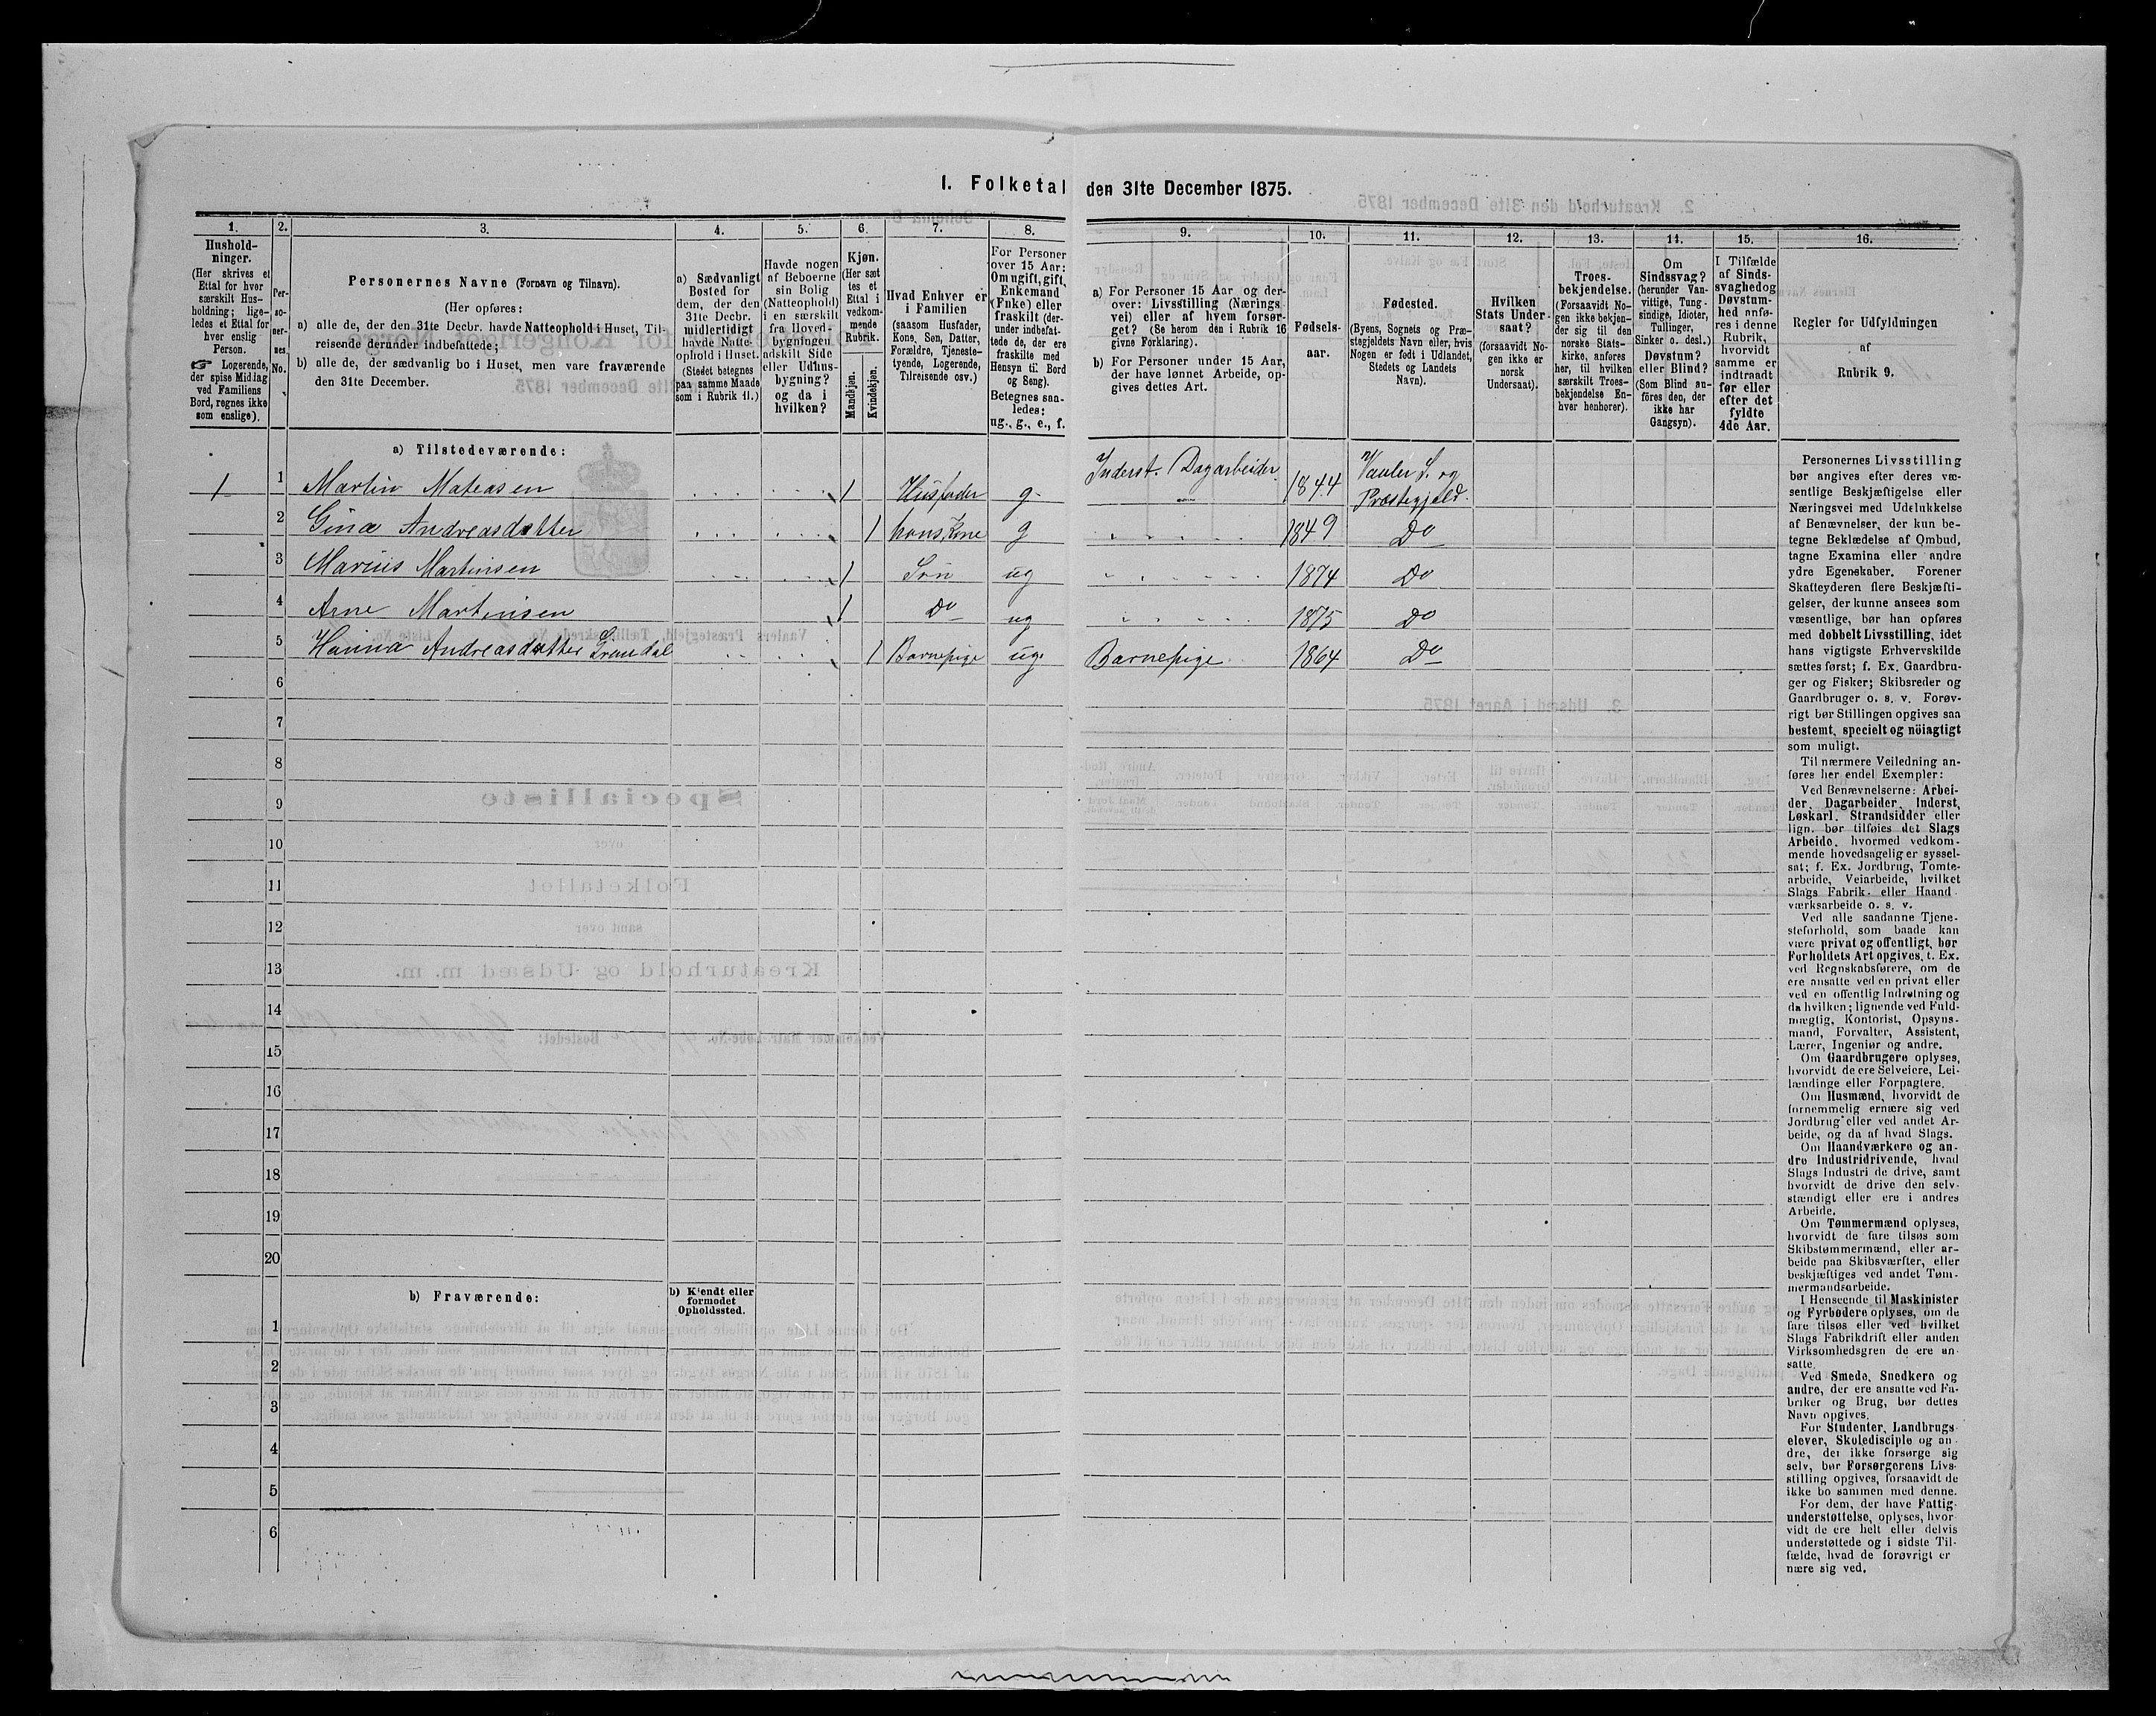 I. Folketal den 31te December 1875.
1.
Hushold-
ninger.
(Her skrives et
Ettal for hver
særskilt Hus-
holdning; lige-
ledes et Ettal for
hver enslig
Person.
☞ Logerende,
der spise Middag
ved Familiens
Bord, regnes ikke
som enslige).
2.
Per-
so-
ner-
nes
No.
3.
Personernes Navne (Fornavn og Tilnavn).
(Her opføres:
a) alle de, der den 31te Decbr. havde Natteophold i Huset, Til-
reisende derunder indbefattede;
b) alle de, der sædvanlig bo i Huset, men vare fraværende
den 31te December.
4.
a) Sædvanligt
Bosted for
dem, der den
31te Decbr.
midlertidigt
havde Natte-
ophold i Huset.
(Stedet betegnes
paa samme Maade
som i Rubrik 11.)
5.
Havde nogen
af Beboerne
sin Bolig
(Natteophold)
i en særskilt
fra Hoved-
bygningen
adskilt Side
eller Udhus-
bygning?
og da i
hvilken?
6.
Kjøn.
(Her sæt
tes et
Ettal i
vedkom-
mende
Rubrik.
Mandkjøn.
Kvindekjøn.
7.
Hvad Enhver er
i Familien
(saasom Husfader,
Kone, Søn, Datter,
Forældre, Tjeneste-
tyende, Logerende,
Tilreisende osv.)
8.
For Personer
over 15 Aar:
Om ugift, gift,
Enkemand
(Enke) eller
fraskilt (der-
under indbefat-
tede de, der ere
fraskilte med
Hensyn til Bord
og Seng).
Betegnes saa-
ledes:
ug., g., e., f.
9.
a) For Personer 15 Aar og der-
over: Livsstilling (Nærings
vei) eller af hvem forsør-
get? (Se herom den i Rubrik 16
givne Forklaring).
b) For Personer under 15 Aar,
der have lønnet Arbeide, op-
gives dettes Art.
10.
Fødsels-
aar.
11.
Fødested.
(Byens, Sognets og Præ-
stegjeldets Navn eller, hvis
Nogen er født i Udlandet,
Stedets og Landets
Navn).
12.
Hvilken
Stats Under-
saat?
(forsaavidt No-
gen ikke er
norsk
Undersaat).
13.
Troes-
bekjendelse.
(Forsaavidt No-
gen ikke bekjen-
der sig til den
norske Stats-
kirke, anføres
her, til hvilken
særskilt Troes-
bekjendelse En-
hver henhører).
14.
Om
Sindssvag?
(herunder Van-
vittige, Tung-
sindige, Idioter,
Tullinger,
Sinker o. desl.)
Døvstum?
eller Blind?
(Som Blind an-
føres den, der
ikke har
Gangsyn).
15.
I Tilfælde
af Sinds-
svaghed og
Døvstum-
hed anfø-
res i denne
Rubrik,
hvorvidt
samme er
indtraadt
før eller
efter det
fyldte
4de Aar.
16.
Regler for Udfyldningen
af
Rubrik 9.
a) Tilstedeværende:
1 1 Martin Mateasen 1 Husfader g. Inderst. Dagarbeider 1844 Vaaler S. og
Præstegjeld.
2 Gina Andreasdatter 1 hans Kone g 1849 Do
3 Marius Martinsen 1 Søn ug 1874 Do
4 Arne Martinsen 1 Do ug 1875 Do
5 Hanna Andreasdatter 1 Barnepige ug. Barnepige 1864 Do
6
7
8
9
10
11
12
13
14
15
16
17
18
19
20
b) Fraværende:
b) Kjendt eller
formodet
Opholdssted.
1
2
3
4
5
6
Personernes Livsstilling
bør angives efter deres væ-
sentlige Beskjæftigelse eller
Næringsvei med Udelukkelse
af Benævnelser, der kun be-
tegne Beklædelse af Ombud,
tagne Examina eller andre
ydre Egenskaber. Forener
Skatteyderen flere Beskjæfti-
gelser, der kunne ansees som
væsentlige, bør han opføres
med dobbelt Livsstilling, idet
hans vigtigste Erhvervskilde
sættes først; f. Ex. Gaardbru-
ger og Fisker; Skibsreder og
Gaardbruger o. s. v. Forøv-
rigt bør Stillingen opgives saa
bestemt, specielt og nöiagtigt
som muligt.
Til nærmere Veiledning an-
føres her endel Exempler:
Ved Benævnelserne: Arbei-
der, Dagarbeider, Inderst,
Løskarl, Strandsidder eller
lign. bør tilføies det Slags
Arbeide, hvormed vedkom-
mende hovedsagelig er syssel-
sat; f. Ex. Jordbrug, Tomte-
arbeide, Veiarbeide, hvilket
Slags Fabrik- eller Haand-
værksarbeide o. s. v.
Ved alle saadanne Tjene-
steforhold, som baade kan
være privat og offentligt, bør
Forholdets Art opgives, t. Ex.
ved Regnskabsførere, om de
ere ansatte ved en privat eller
ved en offentlig Indretning og
da hvilken; lignende ved Fuld-
mægtig, Kontorist, Opsyns-
mand, Forvalter, Assistent,
Lærer, Ingeniør og andre.
Om Gaardbrugere oplyses,
hvorvidt de ere Selveiere, Lei-
lændinge eller Forpagtere.
Om Husmænd, hvorvidt de
fornemmelig ernære sig ved
Jordbrug eller ved andet Ar-
beide, og da af hvad Slags.
Om Haandværkere og an-
dre Industridrivende, hvad
Slags Industri de drive, samt
hvorvidt de drive den selv-
stændigt eller ere i andres
Arbeide.
Om Tømmermænd oplyses,
hvorvidt de fare tilsøs som
Skibstømmermænd, eller ar-
beide paa Skibsværfter, eller
beskjæftiges ved andet Tøm-
mermandsarbeide.
I Henseende til Maskinister
og Fyrbødere oplyses, om de
fare tilsøs eller ved hvilket
Slags Fabrikdrift eller anden
Virksomhedsgren de ere an-
satte.
Ved Smede, Snedkere og
andre, der ere ansatte ved Fa-
briker og Brug, bør dettes
Navn opgives.
For Studenter, Landbrugs-
elever, Skoledisciple og an-
dre, der ikke forsørge sig
selv, bør Forsørgerens Livs-
stilling opgives, forsaavidt de
ikke bo sammen med denne.
For dem, der have Fattig-
understøttelse, oplyses, hvor-
vidt de ere helt eller delvis
understøttede og i sidste Til-
fælde, hvad de forøvrigt er
nære sig ved.